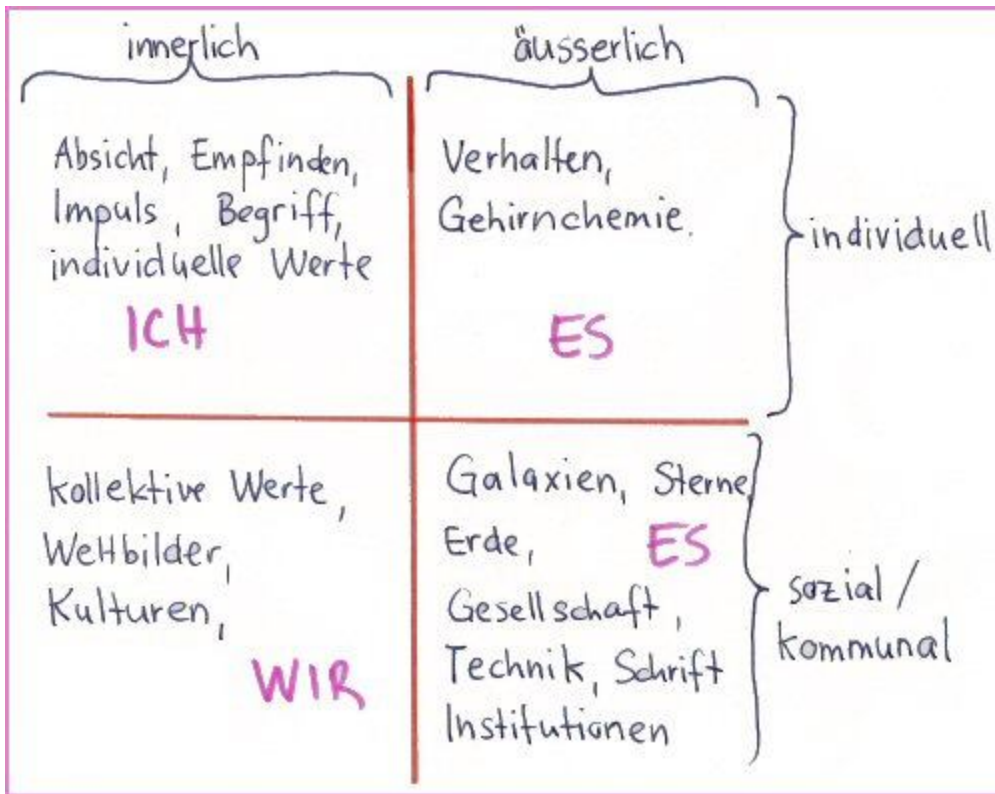 innerlich
äusserlich
Absicht, Empfinden,
Impuls, Begriff,
individuelle Werte
ICH
Verhalten,
Gehirnchemie.
ES
individuell
kollektive Werte,
Weltbilder,
Kulturen,
WIR
Galaxien, Sterne
Erde,
ES
Gesellschaft,
Technik, Schrift
Institutionen
sozial /
kommunal